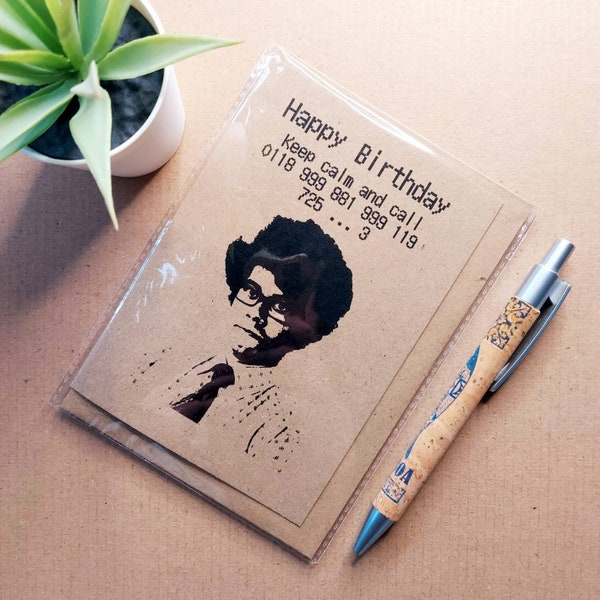 Happy Birthday
Keep calm and call
0118 999 881 999 119
725 ... 3
OA